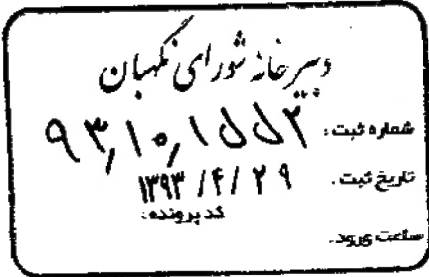 دبیرخانه شورای نگهبان
شماره ثبت: ۹۳/۱۰/۱۵۵۲
تاریخ ثبت: ۱۳۹۳/۴/۲۹
کد پرونده:
ساعت ورود: